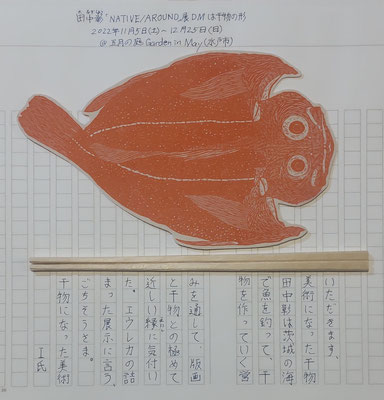 田中彰"NATIVE/AROUND"展DMは干物の形
2022年11月5日(土)-12月25日(日)
@五月の庭 Garden in May(水戸市)
いただきます。
美術になった干物
田中彰は茨城の海
で魚を釣って、干
物を作っていく営
みを通して、版画
と干物との極めて
近しい縁に気付い
た。エウレカの詰
まった展示に言う、
ごちそうさま。
干物になった美術
工氏